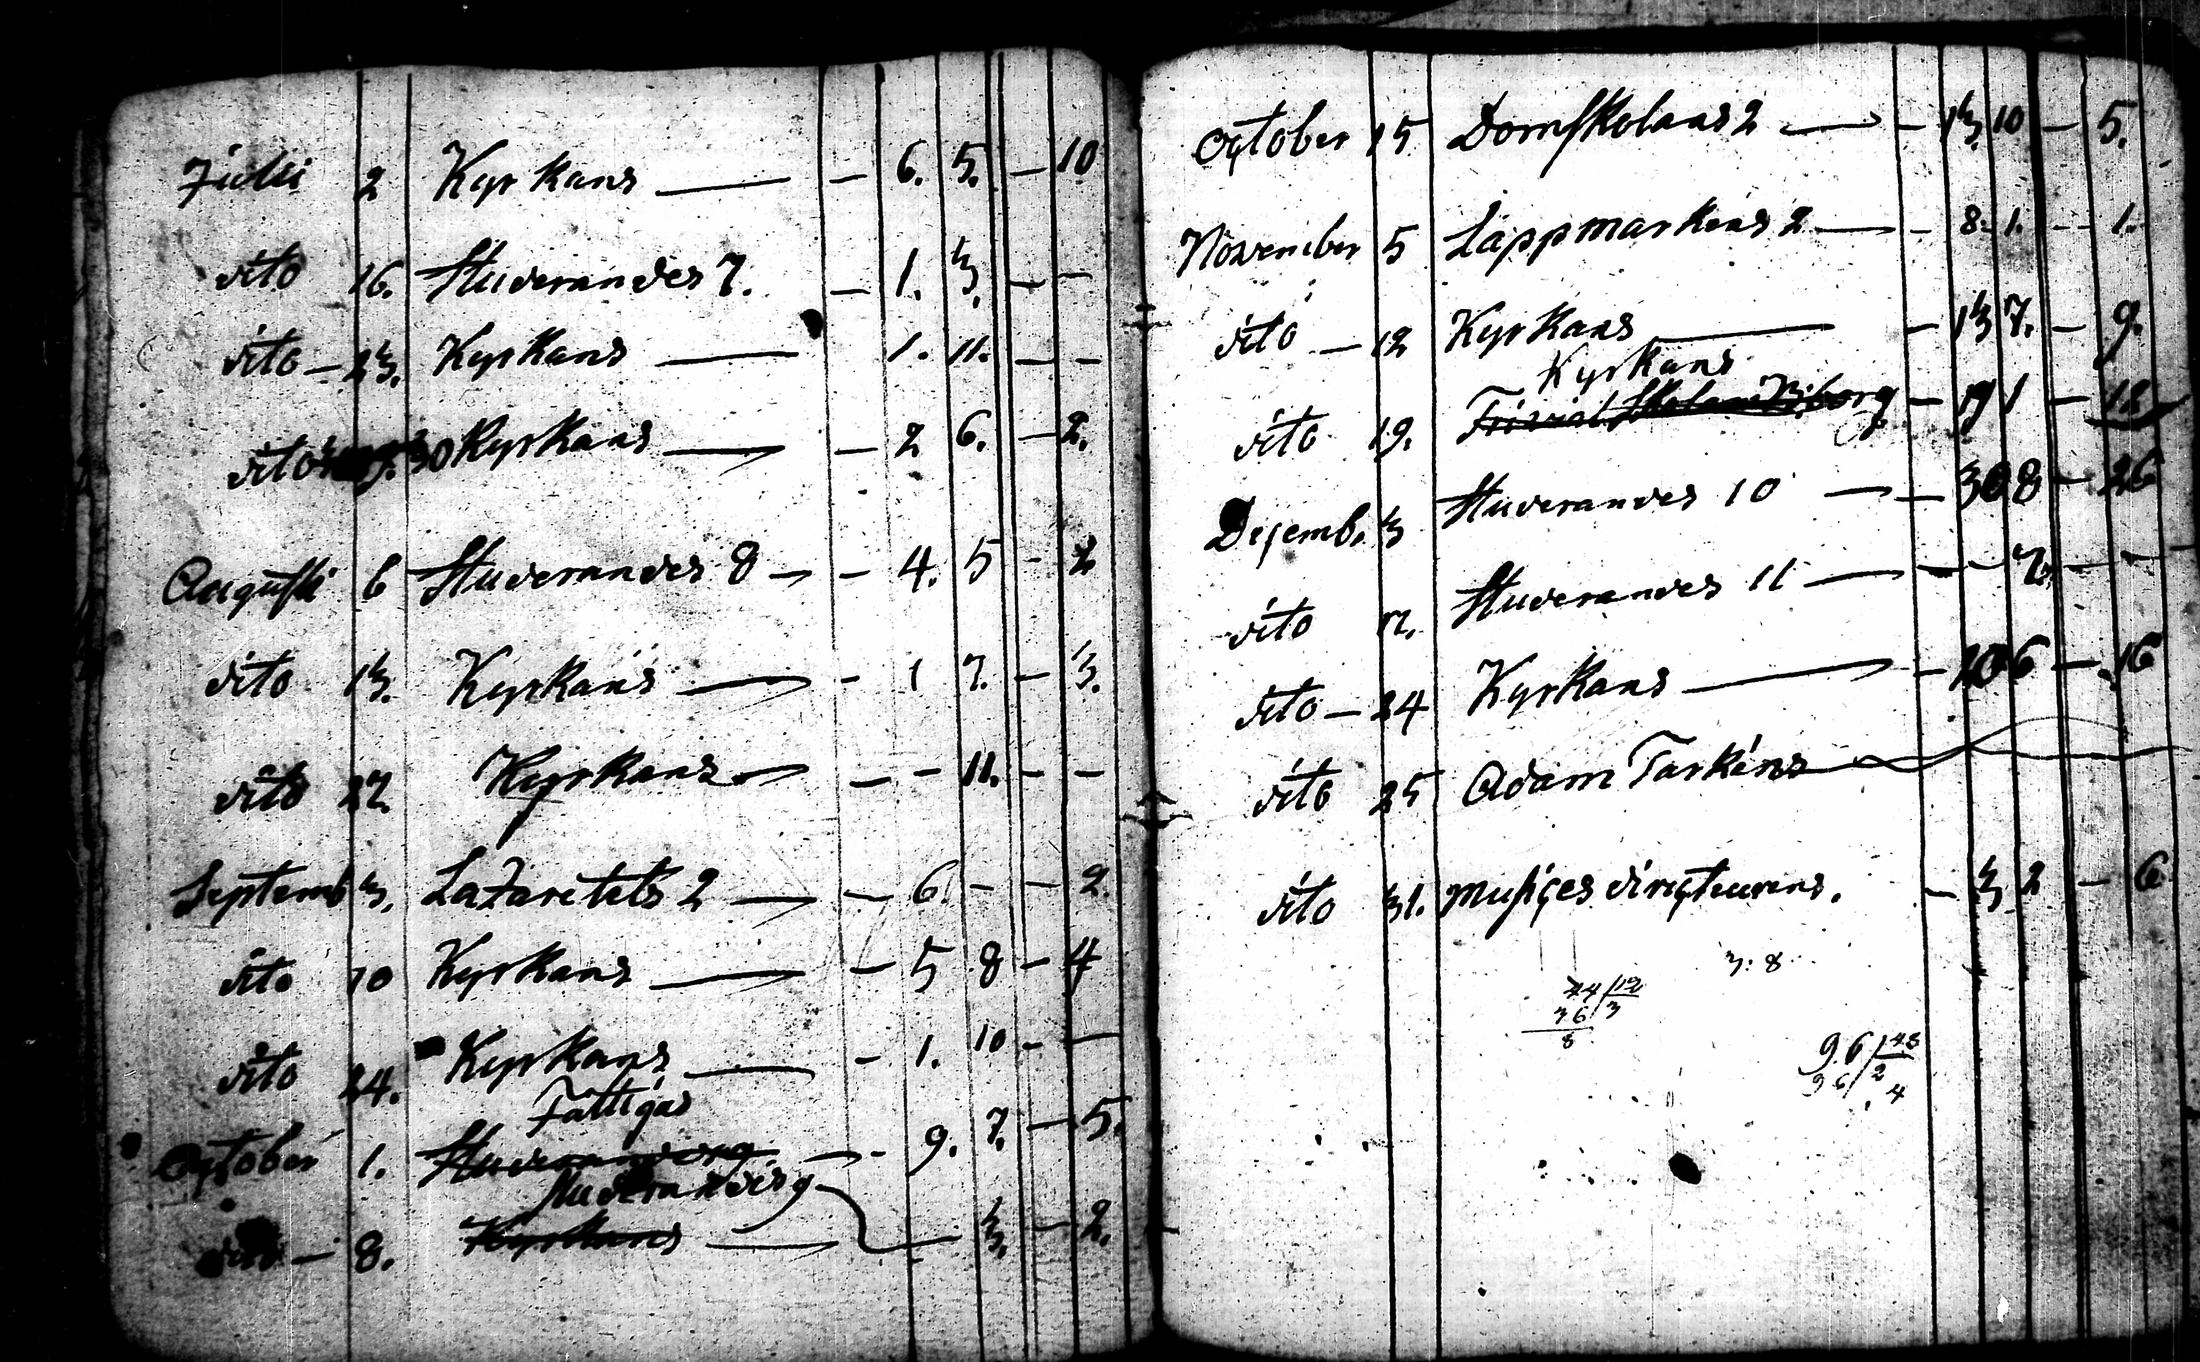 Julii 2 Kyrkans — — 6. 5. — 10
dito 16. Studerandes 7. — 1. 3. — —
dito — 23. Kyrkans — 1. 11. — —
dito 30 Kyrkans — — 2 6. — 2.
Augusti 6 Studerandes 8 — — 4. 5 - 2
dito 13. Kyrkans — - 1 7. — 3.
dito 27. Kyrkans — — - 11. - -
Septemb 3. Lazaretets 2 — — 6. - — 2.
dito 10 Kyrkans — — 5 8 — 4
dito 24. Kyrkans — - 1. 10 - —
Fattigas
October 1. Studerandes — - 9. 7. — 5.
Studerandes
dito — 8. Kyrkans — 3. — 2.
October 15 Domskolans 2 — — 13 10 — 5.
November 5 Lappmarkens 2 — - 8. 1. - - 1.
dito — 12 Kyrkans — — 13 7. — 9.
Kyrkans
dito 19. Trivial Skolans Viborg — 19 1 — 12
Dejemb. 3 Studerandes 10 — — 30 8 — 26
dito 17. Studerandes 11 — — - 7. - —
dito — 24 Kyrkans — — 20 6 — 16
dito 25 Adam Tarkins
dito 31. Musices directeurens. — 3 2 — 6
3: 8
44/12
36/3
8
96/48
96/2
4